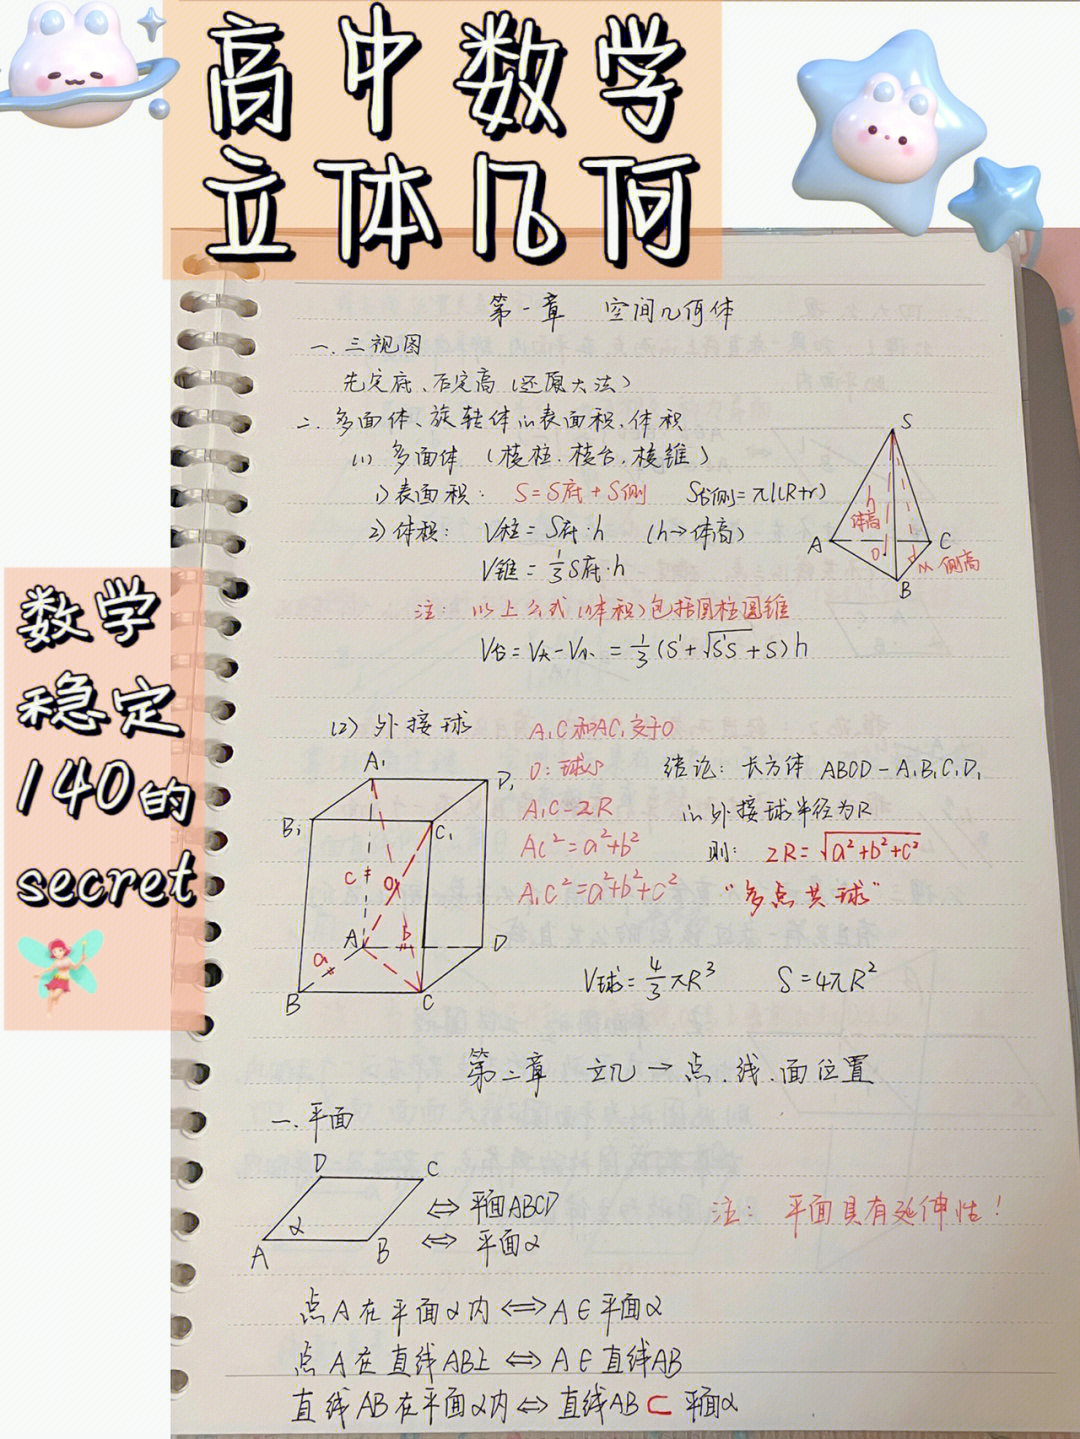 高中数学
立体几何
数学
稳定
140的
secret
第一章 空间几何体
一、三视图
先定底、后定高(还原大法)
二、多面体、旋转体的表面积、体积
(1) 多面体 (棱柱、棱台、棱锥)
1)表面积: S=S底+S侧 S台侧=π(R+r)
2)体积: V柱=S底·h (h→体高)
V锥=1/3 S底·h
注: 以上公式(体积)包括圆柱圆锥
V台=V大-V小=1/3(S'+√S'S+S)h
S
h
体高
A
O
C
M 侧高
B
(2) 外接球
A₁C和AC₁交于O
O:球心
A₁C=2R
AC²=a²+b²
A₁C²=a²+b²+c²
结论: 长方体 ABCD-A₁B₁C₁D₁
的外接球半径为R
则: 2R=√a²+b²+c²
"多点共球"
V球=4/3πR³ S=4πR²
A₁
D₁
B₁
C₁
c
O
A
b
D
a
B
C
第二章 立几→点、线、面位置
一、平面
D
C
α
A
B
⇔ 平面ABCD
⇔ 平面α
注: 平面具有延伸性!
点A在平面α内⇔A∈平面α
点A在直线AB上⇔A∈直线AB
直线AB在平面α内⇔直线AB⊂平面α